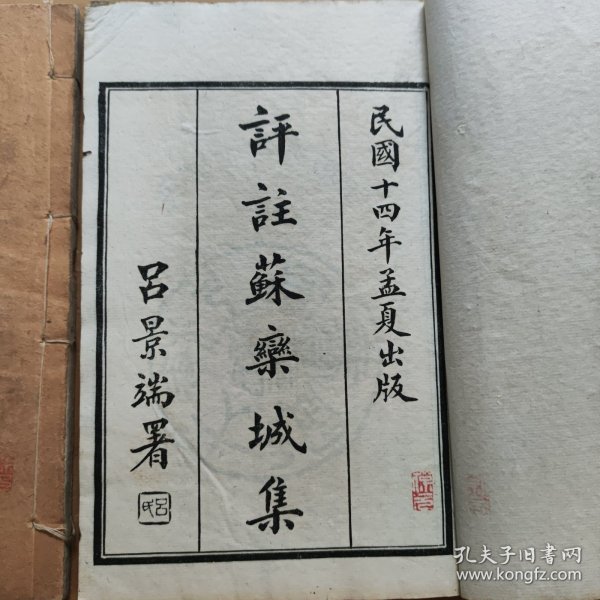 民國十四年孟夏出版
評註蘇欒城集
呂景端署
呂氏
孔夫子旧书网
www.kongfz.com